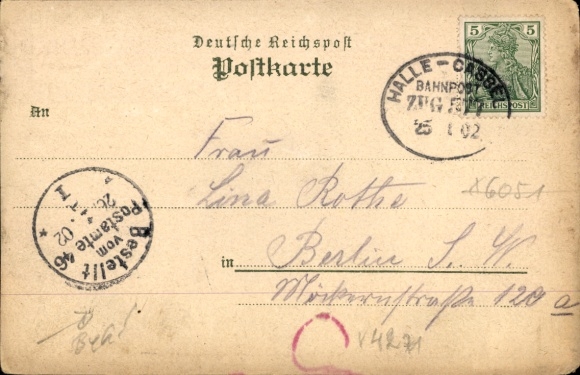 Deutsche Reichspost
Postkarte
An
5 5
REICHSPOST
HALLE - CASSEL
BAHNPOST
ZUG
25 1 02
Frau
Lina Rothe
in Berlin S. W.
Möckernstraße 120 a
Bestellt
vom
Postamte
46
02
X6051
V4271